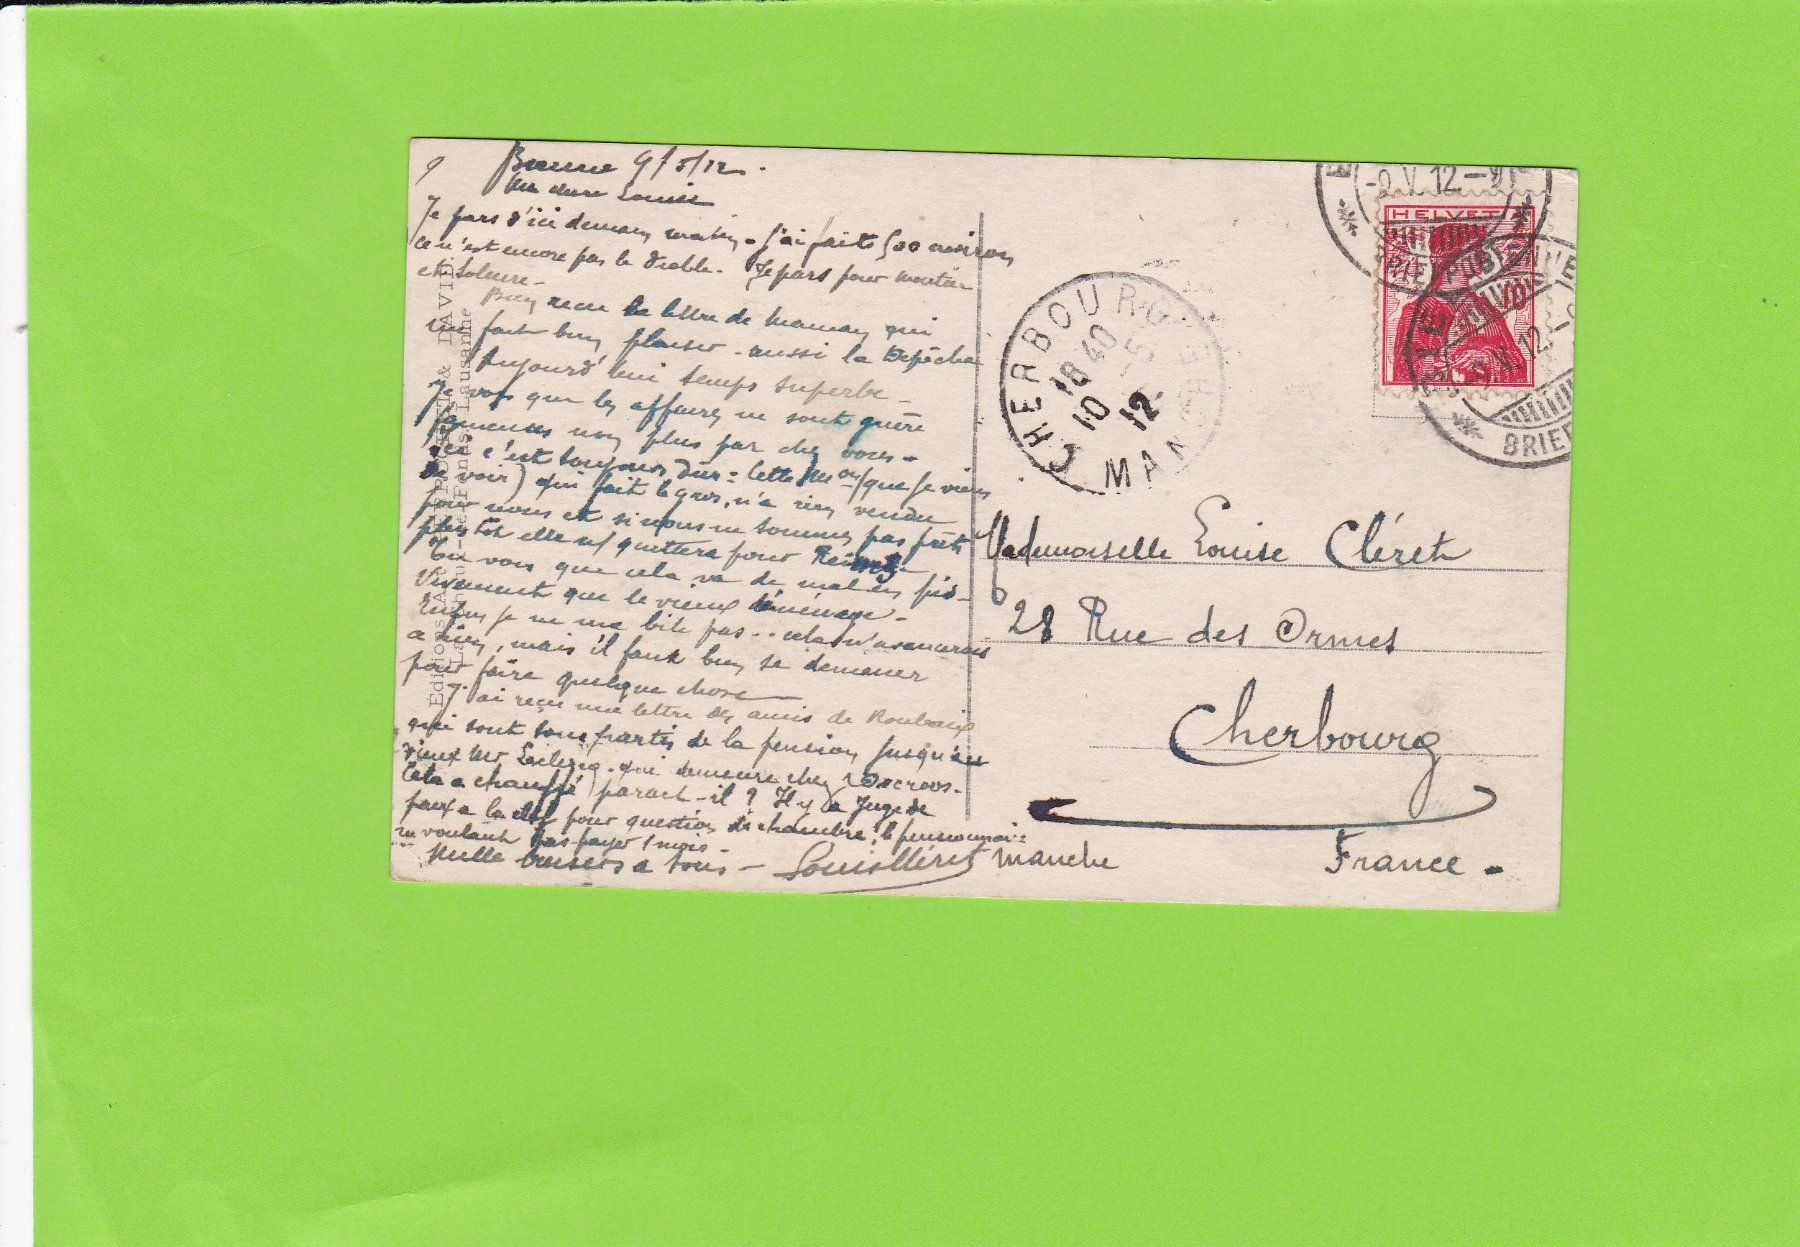 9
Bienne 9/5/12.
Ma chère Louise
Je pars d'ici demain matin. j'ai fait 500 environ
ce n'est encore pas le diable. Je pars pour Moutier
et Soleure.
Bien reçu la lettre de Maman qui
me fait bien plaisir. aussi la Dépêche
Aujourd'hui temps superbe.
Je vois que les affaires ne sont guère
fameuses non plus par chez vous.
Ici c'est toujours dur. Cette Mon (que je viens
de voir) qui fait le gros, n'a rien vendu
pour nous et si nous ne sommes pas prêts
plus tôt elle ns quittera pour
Tu vois que cela va de mal en pis.
Vivement que le vieux déménage.
Enfin je ne me bile pas.. cela n'avancerait
à rien, mais il faut bien se démener
pour faire quelque chose
J'ai reçu une lettre des amis de Roubaix
qui sont tous partis de la pension jusqu'au
vieux Mr Leclercq qui demeure chez Decroos.
Cela a chauffé paraît-il ? Il y a Juge de
paix à la clef pour question de chambre, le pensionnaire
ne voulant pas payer 1 mois.
Mille baisers à tous — Louis Cléret
Editions & DAVID
Lausanne
CHERBOURG
MANCHE
18 40
10 5
12
HELVETIA
-9.V.12.-9
BRIEFPOST
-9.V.12.-9
BRIEF
Mademoiselle Louise Cléret
28 Rue des Ormes
Cherbourg
Manche France.